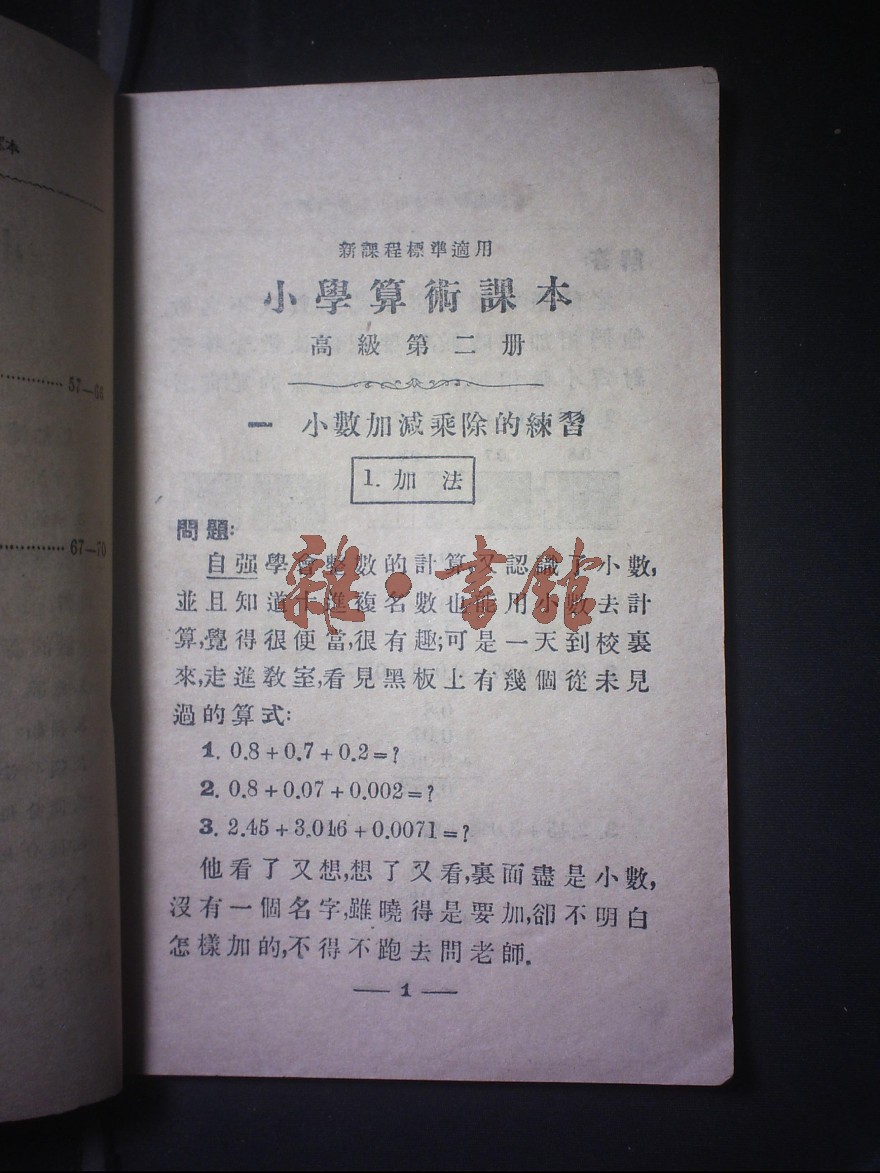 本
57—66
67—70
新課程標準適用
小學算術課本
高級第二册
一 小數加減乘除的練習
1. 加法
問題:
自强學會整數的計算,又認識了小數,
並且知道十進複名數也能用小數去計
算,覺得很便當,很有趣;可是一天到校裏
來,走進敎室,看見黑板上有幾個從未見
過的算式:
1. 0.8+0.7+0.2=?
2. 0.8+0.07+0.002=?
3. 2.45+3.016+0.0071=?
他看了又想,想了又看,裏面盡是小數,
沒有一個名字,雖曉得是要加,卻不明白
怎樣加的,不得不跑去問老師.
— 1 —
雜·書館